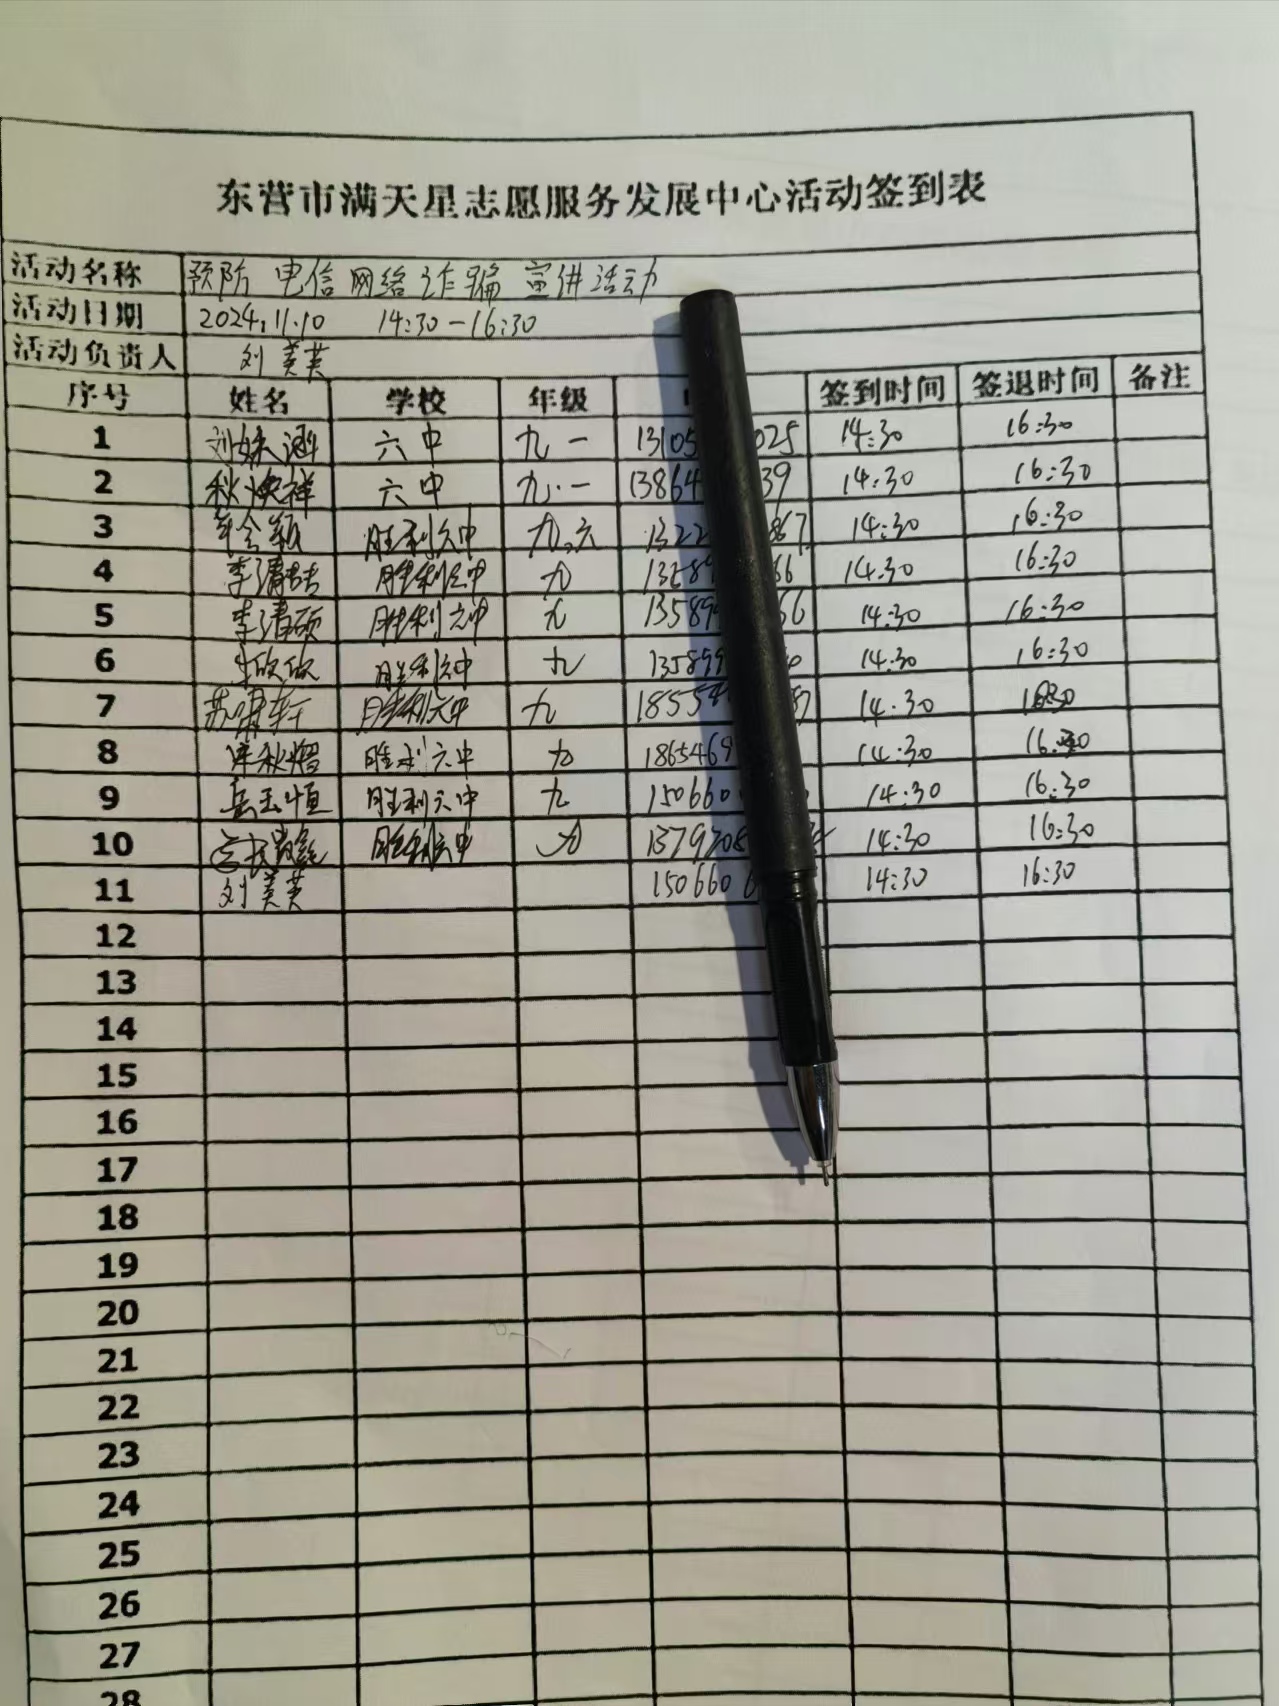 东营市满天星志愿服务发展中心活动签到表
活动名称 预防电信网络诈骗宣讲活动
活动日期 2024.11.10 14:30-16:30
活动负责人 刘美英
序号 姓名 学校 年级 签到时间 签退时间 备注
1 六中 九一 13105 025 14:30 16:30
2 六中 九.一 13864 39 14:30 16:30
3 胜利六中 九.六 1322 867 14:30 16:30
4 李清喆 胜利六中 九 66 14:30 16:30
5 李清硕 胜利六中 九 13589 66 14:30 16:30
6 胜利六中 九 135899 14:30 16:30
7 胜利六中 九 1855 14:30 16:30
8 胜利六中 九 1865469 14:30 16:30
9 岳玉恒 胜利六中 九 150660 14:30 16:30
10 胜利六中 九 1379208 14:30 16:30
11 刘美英 150660 6 14:30 16:30
12
13
14
15
16
17
18
19
20
21
22
23
24
25
26
27
28